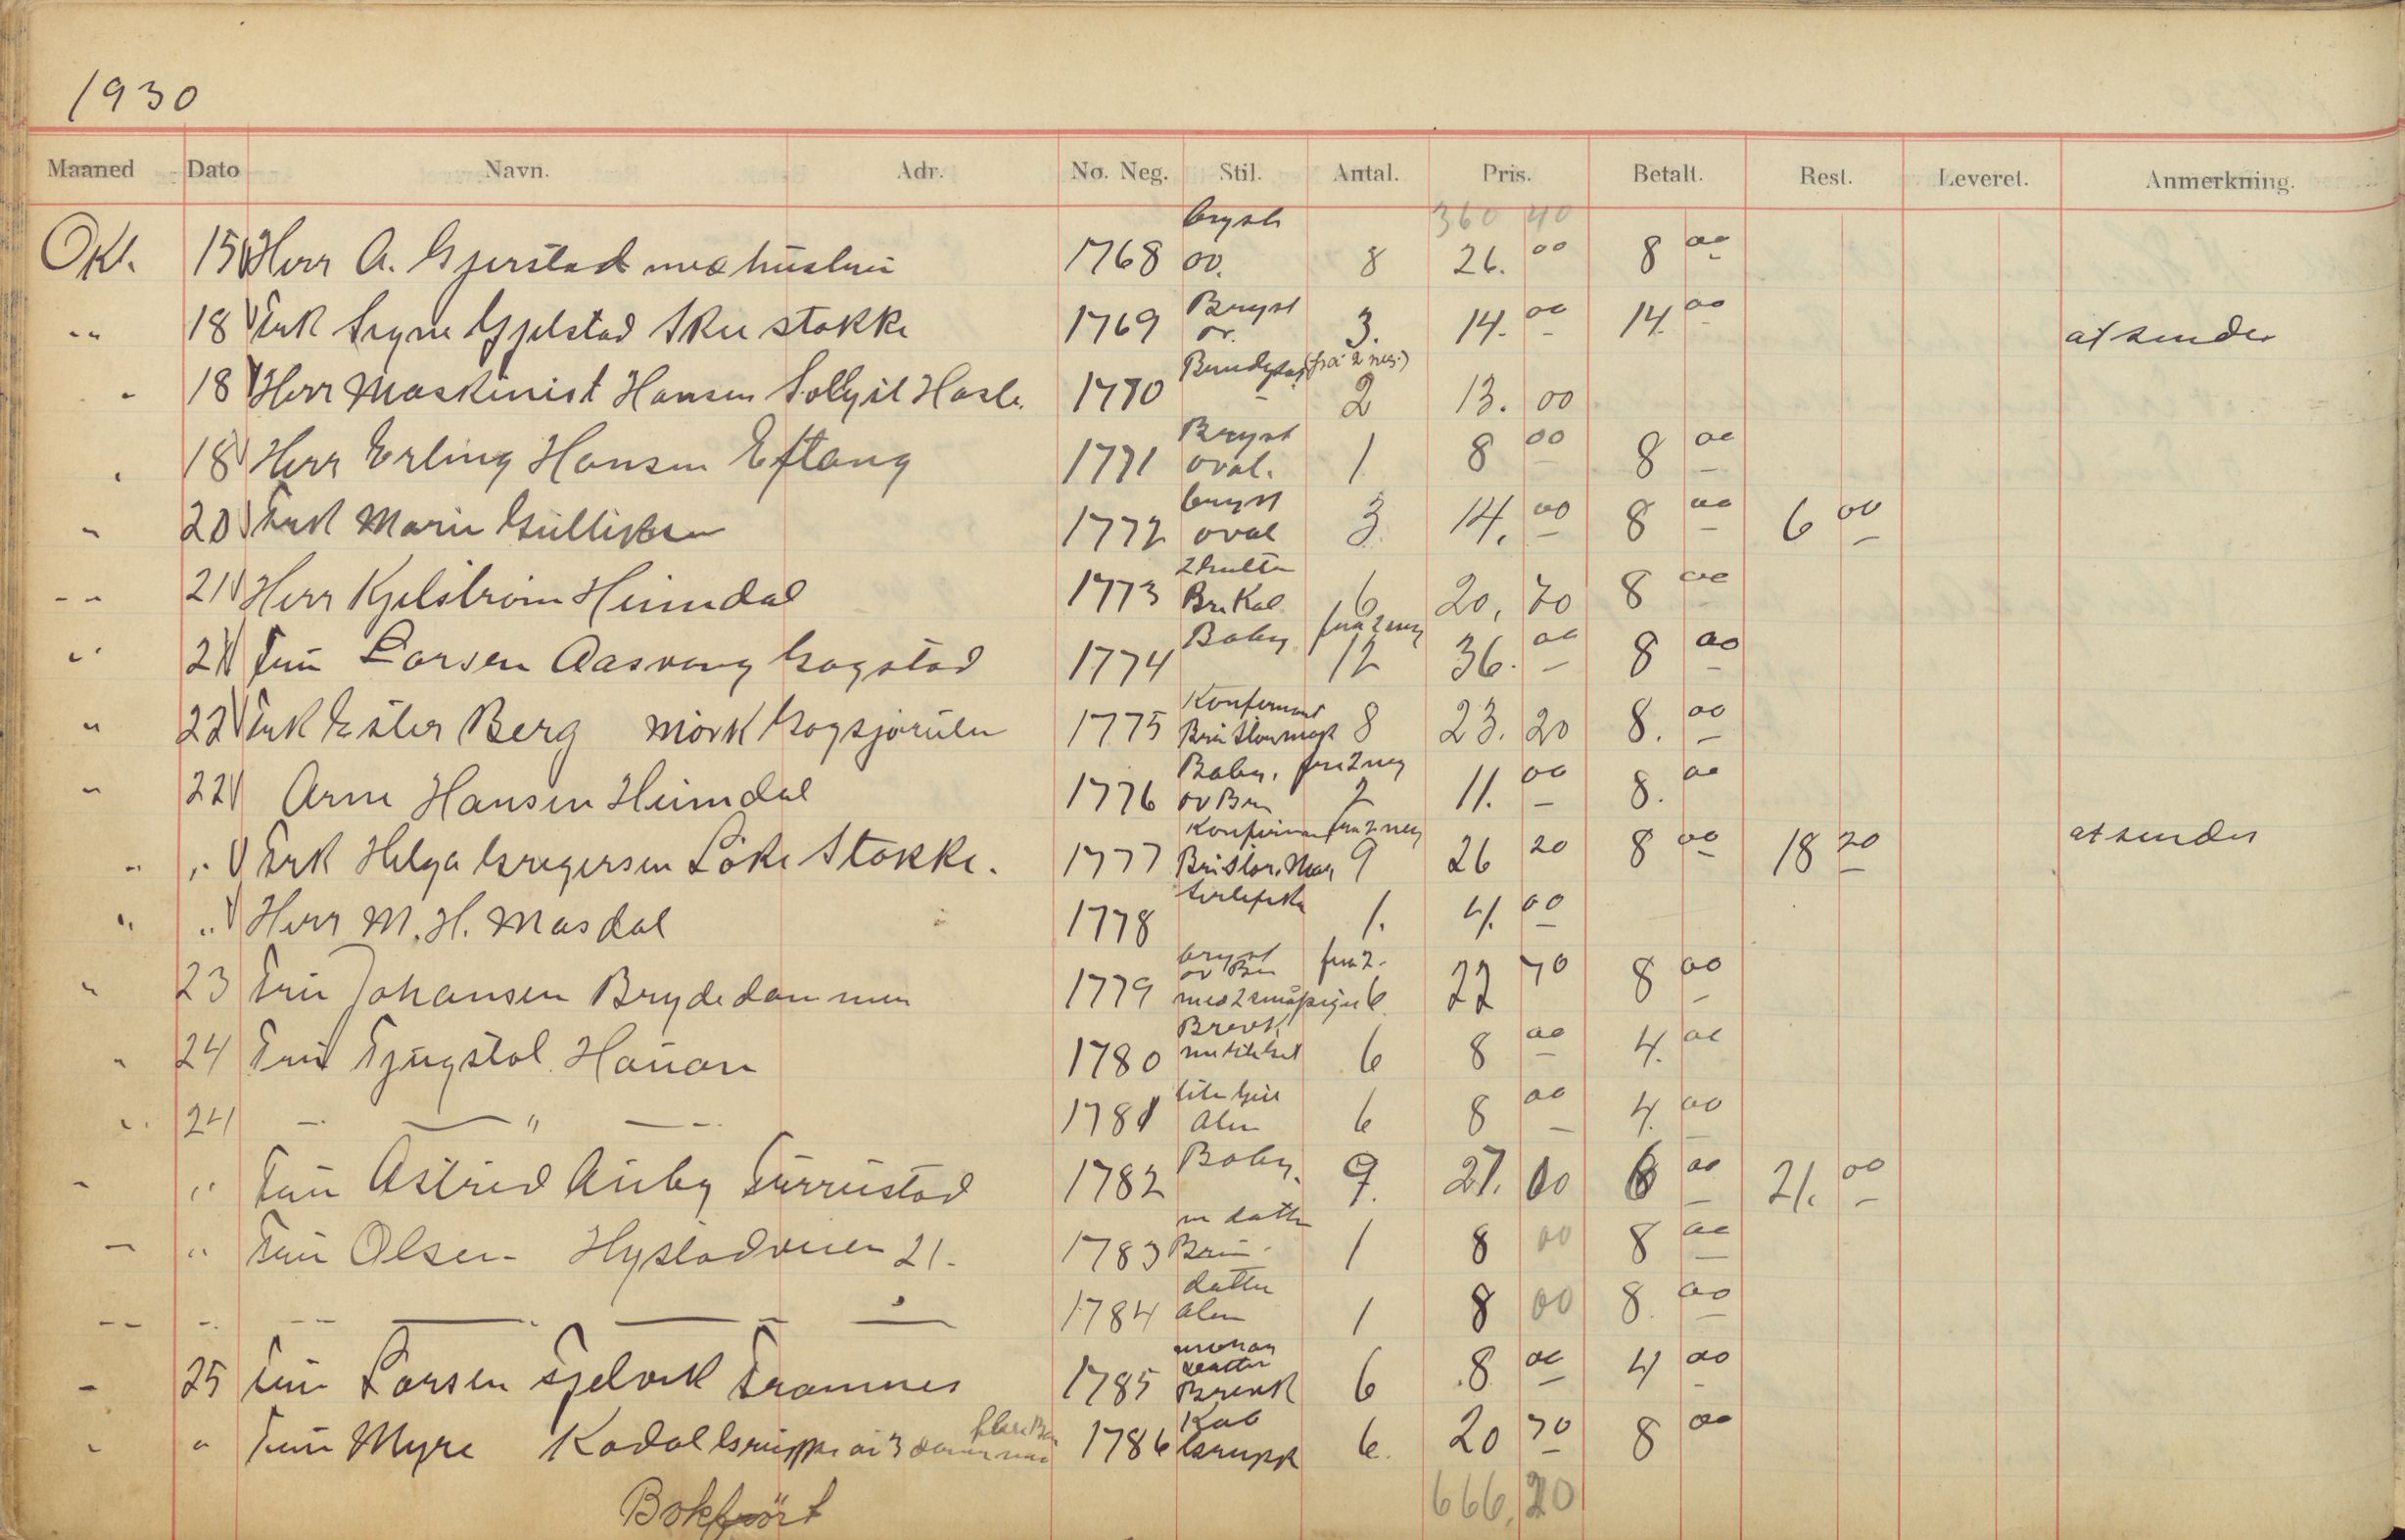 1930
Maaned Dato Navn. Adr. No. Neg. Stil. Antal. Pris. Betalt. Rest. Leveret. Anmerkning.
360 40
bryst
Okt. 15 Herr A. Gjerstad med hustru 1768 ov. 8 26. 00 8 00
Bryst
" 18 Frk Signe Gjelstad Skee stokke 1769 ov. 3. 14. 00 14. 00 at sendes
(fra 2 neg.)
" 18 Herr Maskinist Hansen Solgit Hasle. 1770 2 13. 00
Bryst
" 18 Herr Erling Hansen Eftang 1771 oval. 1 8 00 8 00
bryst
" 20 Frk Marie Gulliksen 1772 oval 3 14. 00 8 00 6 00
" 21 Herr Kjelstrøm Heimdal 1773 Br. Kab 6 20, 70 8 00
Baby fra 2 neg
" 21 Fru Larsen Aasvang Gogstad 1774 12 36. 00 8 00
Konfirmant
" 22 Frk Ester Berg mørk Gogsjordet 1775 8 23. 20 8. 00
Baby, fra 2 neg
" 22 Arne Hansen Heimdal 1776 ov Brn 2 11. 00 8. 00
fra 2 neg
" " Frk Helga Gregersen Løke Stokke. 1777 9 26 20 8 00 18 20 at sendes
" " Herr M. H. Masdal 1778 1. 4. 00
bryst fra 2.
" 23 Fru Johansen Brydedammen 1779 ov Brn med 2 småpiger 6 22 70 8 00
Brevk.
" 24 Fru Fjugstol Hauan 1780 6 8 00 4. 00
" 24 — " — 1781 Alm 6 8 00 4. 00
Baby.
" " Fru Astrid Auby Furrustad 1782 9. 27. 00 6 00 21. 00
m datter
" " Fru Olsen Hystadveien 21. 1783 Brun 1 8 00 8 00
datter
" " — " — 1784 alm 1 8 00 8. 00
datter
" 25 Fru Larsen Fjelvik Framnes 1785 Brevk 6 8 00 4 00
Kab
" " Fru Myre Kodal Gruppe av 3 damer 1786 Grupp 6. 20 70 8 00
Bokført 666,20